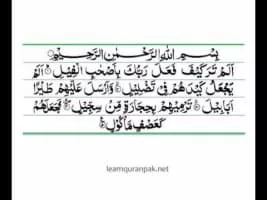 بِسْمِ اللّٰهِ الرَّحْمٰنِ الرَّحِيْمِ
اَلَمْ تَرَ كَيْفَ فَعَلَ رَبُّكَ بِاَصْحٰبِ الْفِيْلِ ۝ اَلَمْ
يَجْعَلْ كَيْدَهُمْ فِيْ تَضْلِيْلٍ ۝ وَّاَرْسَلَ عَلَيْهِمْ طَيْرًا
اَبَابِيْلَ ۝ تَرْمِيْهِمْ بِحِجَارَةٍ مِّنْ سِجِّيْلٍ ۝ فَجَعَلَهُمْ
كَعَصْفٍ مَّاْكُوْلٍ ۝
learnquranpak.net